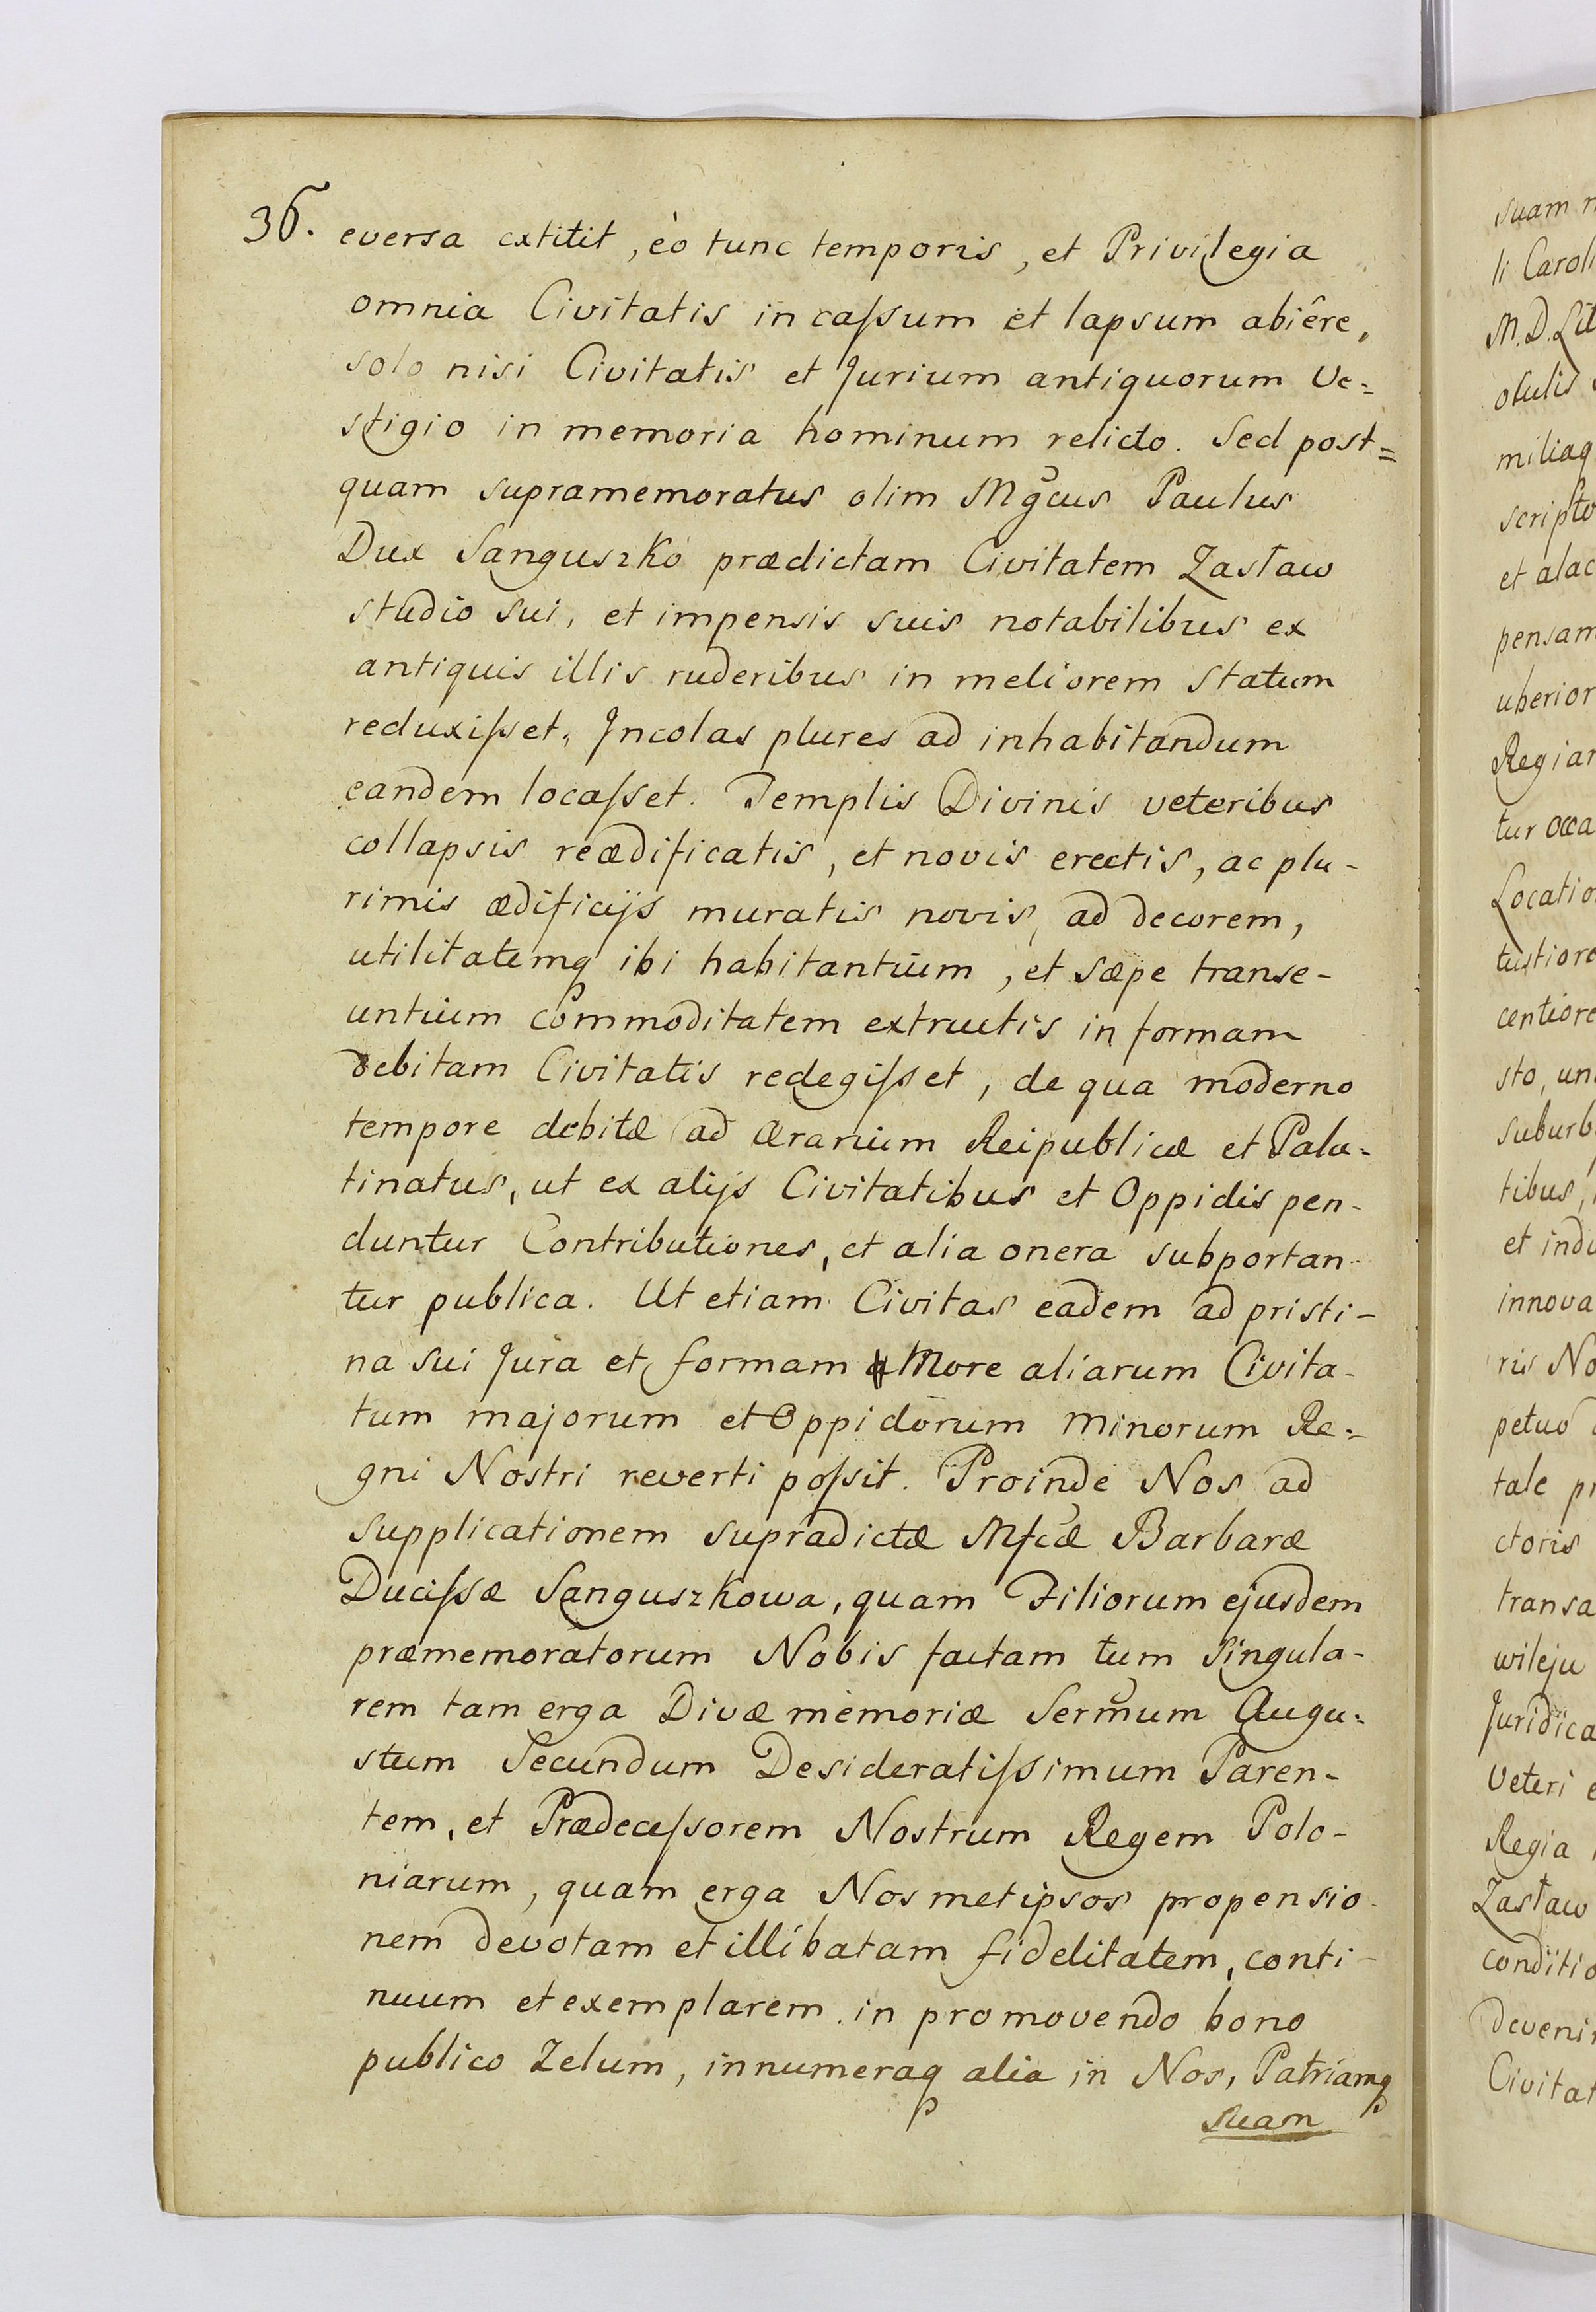 36.
eversa extitit, eò tunc temporis, et Privilegia
omnia Civitatis in caſsum et lapsum abiêre,
solo nisi Civitatis et Jurium antiquorum Ve=
stigio in memoria hominum relicto. Sed post=
quam supramemoratus olim Mgcus Paulus
Dux Sanguszko prædictam Civitatem Zasław
studio sui, et impensis suis notabilibus ex
antiquis illis ruderibus in meliorem statum
reduxiſset, Incolas plures ad inhabitandum
eandem locaſset. Templis Divinis veteribus
collapsis reædificatis, et novis erectis, ac plu-
rimis ædificijs muratis novis, ad decorem,
utilitatemq ibi habitantium, et sæpe transe-
untium commoditatem extructis in formam
debitam Civitatis redegiſset, de qua moderno
tempore debitæ ad Ærarium Reipublicæ et Pala=
tinatus, ut ex alijs Civitatibus et Oppidis pen-
duntur Contributiones, et alia onera subportan-
tur publica. Ut etiam Civitas eadem ad pristi-
na sui Jura et formam More aliarum Civita-
tum majorum et Oppidorum minorum Re=
gni Nostri reverti poſsit. Proinde Nos ad
supplicationem supradictæ Mfcæ Barbaræ
Duciſsæ Sanguszkowa, quam Filiorum ejusdem
præmemoratorum Nobis factam tum singula-
rem tam erga Divæ memoriæ Sermum Augu=
stum Secundum Desideratiſsimum Paren-
tem, et Prædeceſsorem Nostrum Regem Polo-
niarum, quam erga Nos metipsos propensio-
nem devotam et illibatam fidelitatem, conti-
nuum et exemplarem in promovendo bono
publico Zelum, innumeraq alia in Nos, Patriamq
suam
suam
li Caroli
M.D. Lit
miliaq
scripto
et alac
pensam
uberior
Regiar
tur occa
Locatio
tustiore
centiore
sto, un
suburb
tibus,
et indu
innova
ris No
petuo
tale pr
ctoris
transa
wileju
Juridica
Veteri e
Regia
Zasław
conditio
deveni
Civitat